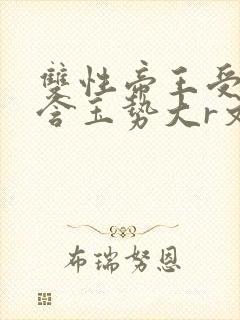 双性帝王受
含玉势大r文
布瑞努恩